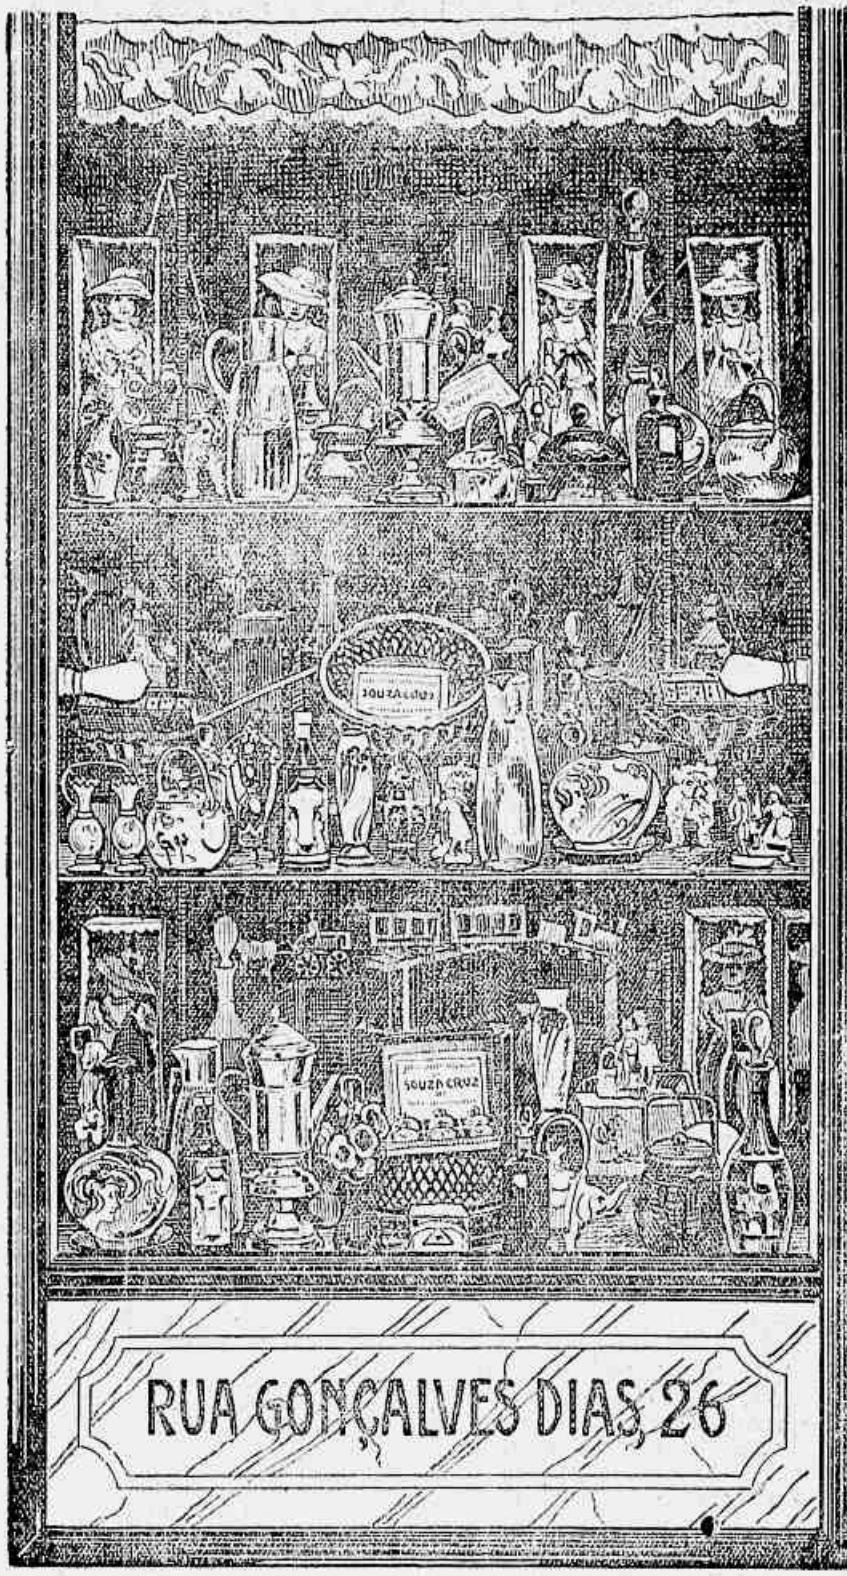 SOUZA CRUZ
SOUZA CRUZ
RUA GONÇALVES DIAS, 26